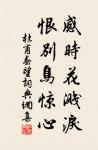 感時花濺淚
恨別鳥驚心
杜甫春望詞典網集